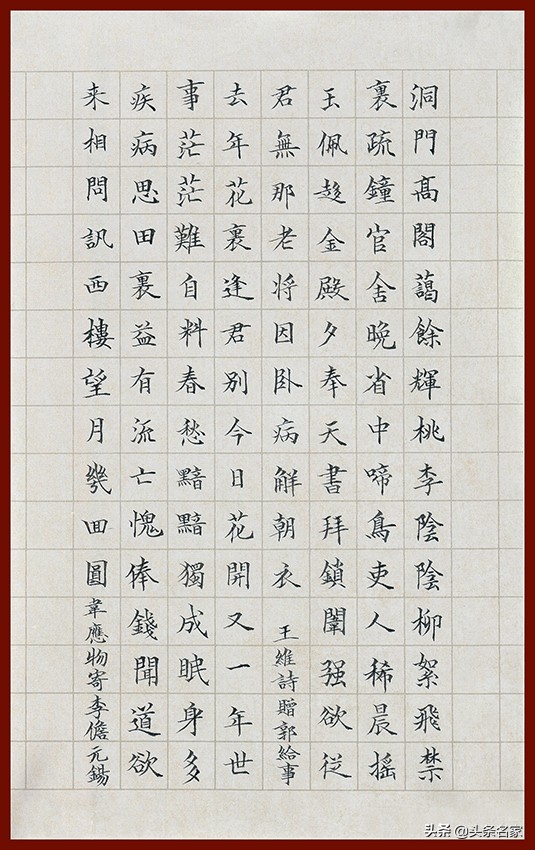 洞門髙閣藹餘輝桃李陰陰柳絮飛禁
裏疏鐘官舍晚省中啼鳥吏人稀晨搖
玉佩趍金殿夕奉天書拜鎖闈强欲從
君無那老將因卧病解朝衣 王維詩贈郭給事
去年花裏逢君别今日花開又一年世
事茫茫難自料春愁黯黯獨成眠身多
疾病思田裏益有流亡愧俸錢聞道欲
来相問訊西樓望月幾囬圓 韋應物寄李儋元錫
头条 @头条名家